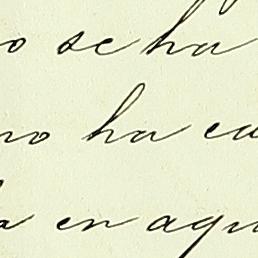 o se ha
no ha ca
a en aqu